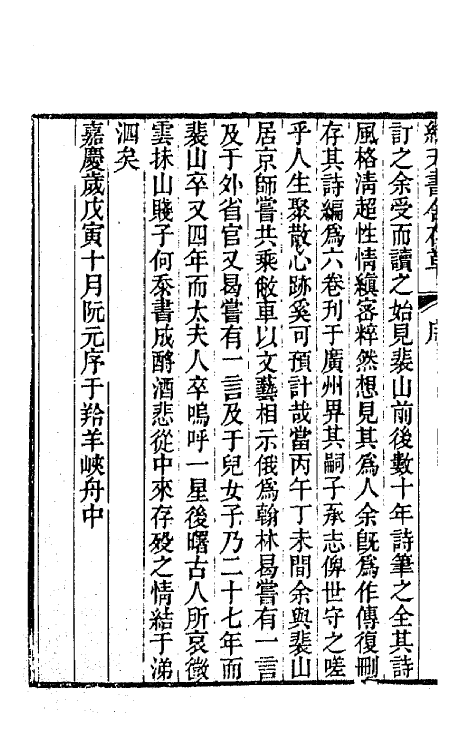 訂之余受而讀之始見裴山前後數十年詩筆之全其詩
風格清超性情縝密粹然想見其爲人余旣爲作傳復刪
存其詩編爲六卷刊于廣州畀其嗣子承志俾世守之嗟
乎人生聚散心跡奚可預計哉當丙午丁未間余與裴山
居京師嘗共乘敝車以文藝相示俄爲翰林曷嘗有一言
及于外省官又曷嘗有一言及于兒女子乃二十七年而
裴山卒又四年而太夫人卒嗚呼一星後曙古人所哀微
雲抹山賤子何忝書成酹酒悲從中來存歿之情結于涕
泗矣
嘉慶歲戊寅十月阮元序于羚羊峽舟中